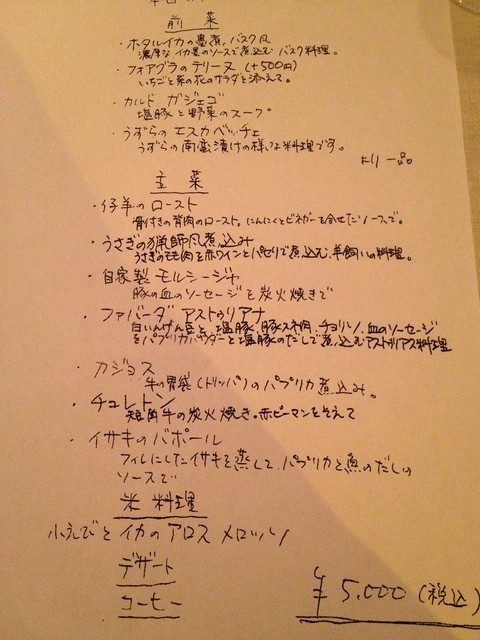 前菜
・ホタルイカの墨煮、バスク風
濃厚なイカ墨のソースで煮込む バスク料理。
・フォアグラのテリーヌ (+500円)
いちごと菜の花のサラダと添えて。
・カルド ガジェゴ
塩豚と野菜のスープ
・うずらの エスカベッチェ
うずらの南蛮漬けの様な料理です。
より 一品
主菜
・仔羊のロースト
骨付きの背肉のロースト。にんにくとビネガーを合せたソースで。
・うさぎの猟師風煮込み
うさぎのモモ肉を赤ワインとパセリで煮込む、羊飼いの料理。
・自家製 モルシージャ
豚の血のソーセージを炭火焼きで
・ファバーダ アストゥリアナ
白いんげん豆と、塩豚、豚スネ肉、チョリソ、血のソーセージ
をパプリカパウダーと塩豚のだしで煮込むアストゥリアス料理
・カジョス
牛の胃袋(トリッパ)のパプリカ煮込み。
・チュレトン
短角牛の炭火焼き。赤ピーマンをそえて
・イサキのバポール
フィレにしたイサキを蒸して パプリカと魚のだしの
ソースで
米料理
小えびとイカのアロス メロッソ
デザート
コーヒー
¥5,000 (税込)